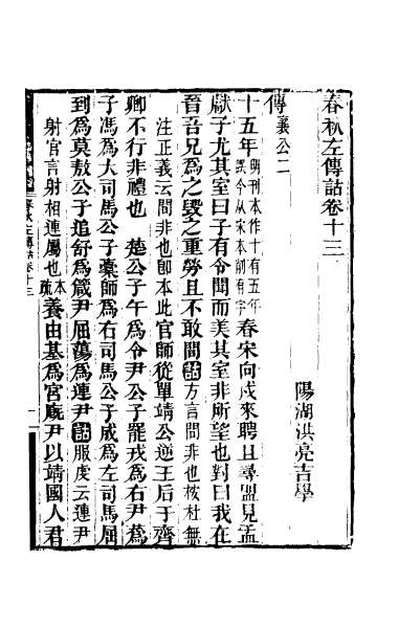 春秋左傳詁卷十三
陽湖洪亮吉學
傳 襄公二
十五年 朙刊本作十有五年誤今从宋本削有字 春宋向戌來聘且尋盟見孟
獻子尤其室曰子有令聞而美其室非所望也對曰我在
晉吾兄爲之毀之重勞且不敢閒 詁 方言閒非也按杜無
注正義云閒非也卽本此 官師從單靖公逆王后于齊
卿不行非禮也 楚公子午爲令尹公子罷戎爲右尹蔿
子馮爲大司馬公子橐師爲右司馬公子成爲左司馬屈
到爲莫敖公子追舒爲箴尹屈蕩爲連尹 詁 服虔云連尹
射官言射相連屬也 本疏 養由基爲宮廐尹以靖國人君
春秋左傳詁卷十三
一